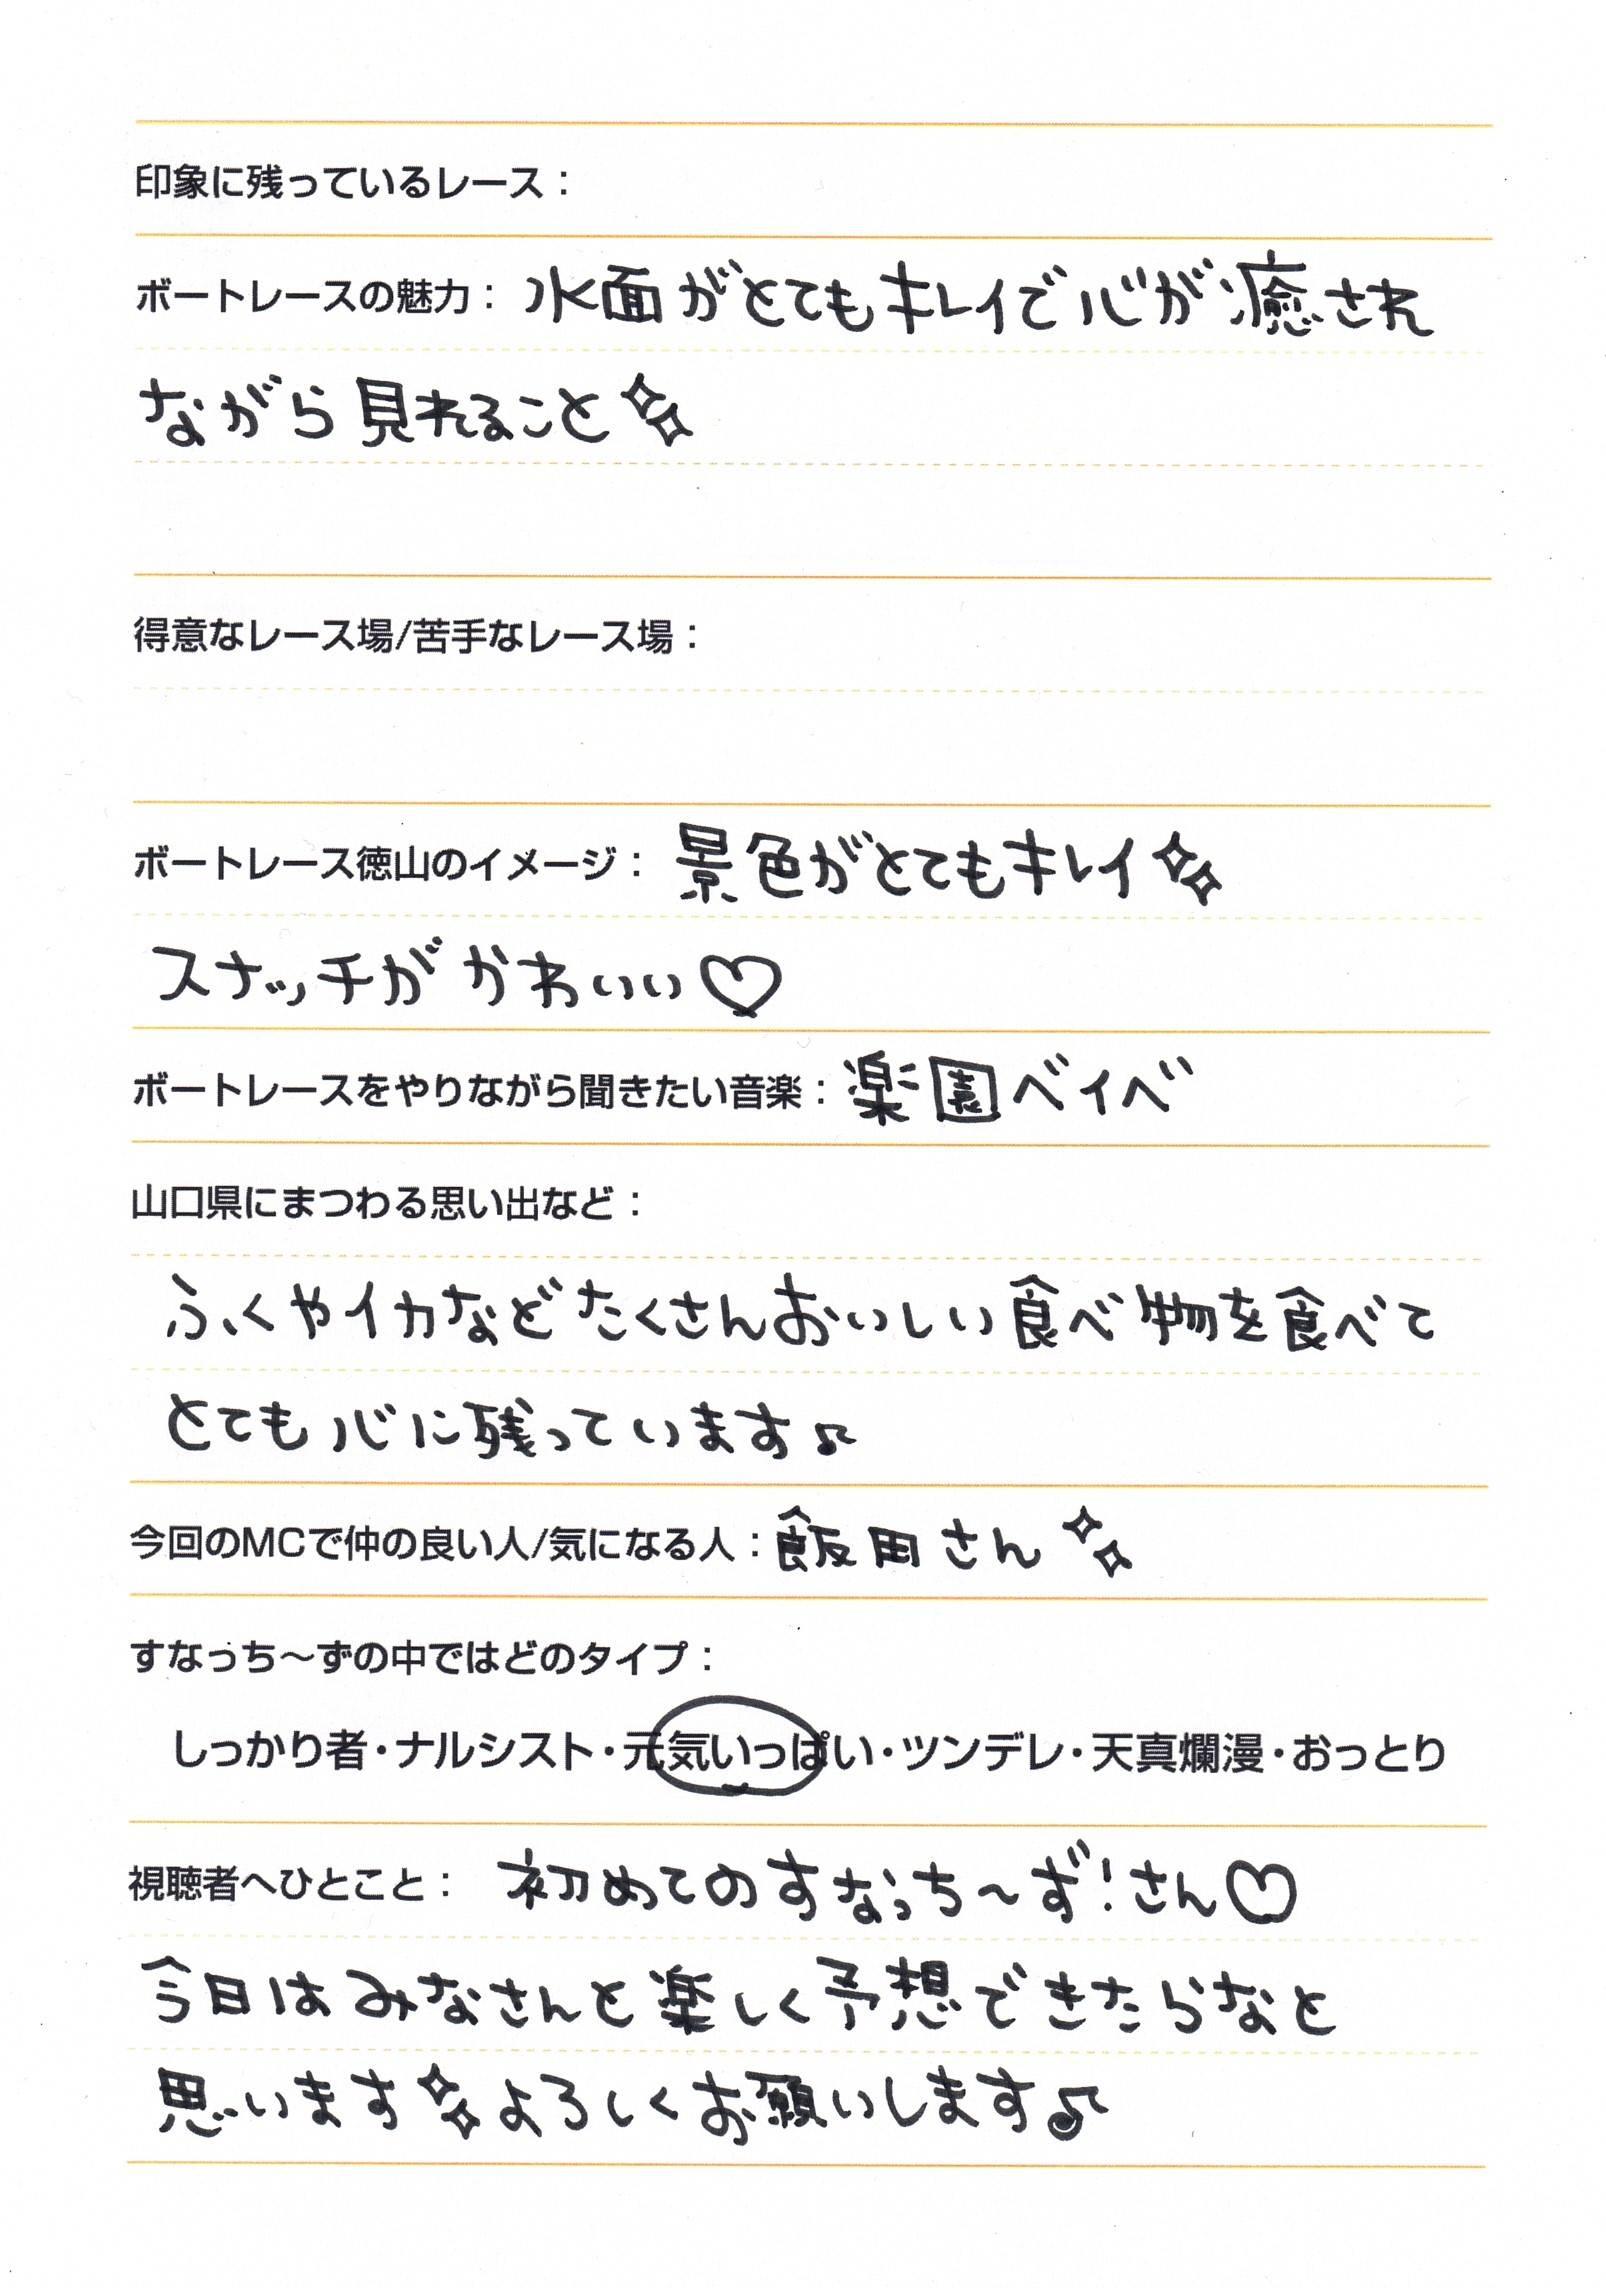 印象に残っているレース：
ボートレースの魅力：水面がとてもキレイで心が癒され
ながら見れること✨
得意なレース場/苦手なレース場：
ボートレース徳山のイメージ：景色がとてもキレイ✨
スナッチがかわいい♡
ボートレースをやりながら聞きたい音楽：楽園ベイベ
山口県にまつわる思い出など：
ふくやイカなどたくさんおいしい食べ物を食べて
とても心に残っています♪
今回のMCで仲の良い人/気になる人：飯田さん✨
すなっち～ずの中ではどのタイプ：
しっかり者・ナルシスト・元気いっぱい・ツンデレ・天真爛漫・おっとり
視聴者へひとこと：初めてのすなっち～ず！さん♡
今日はみなさんと楽しく予想できたらなと
思います✨よろしくお願いします♪